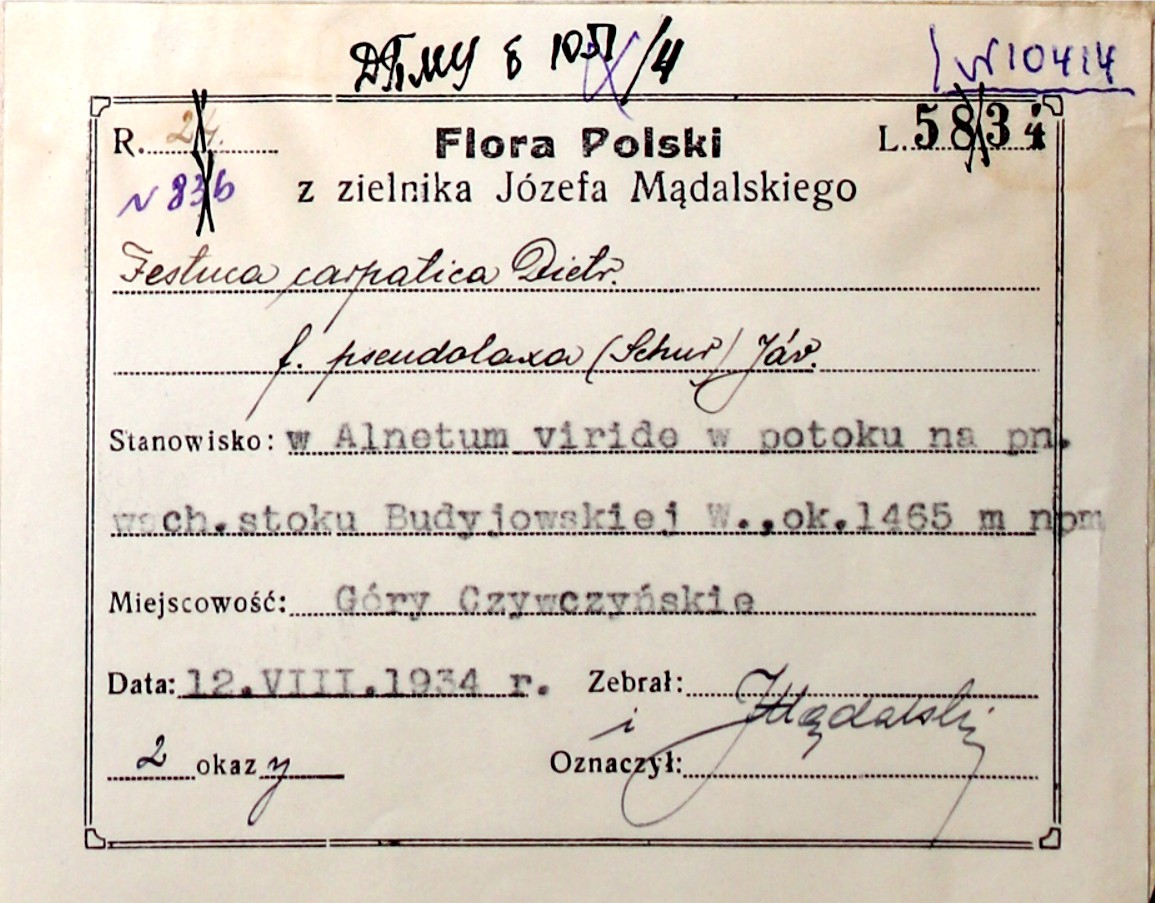 ДПМУ Б 1051/4
№ 10414
R. 24.
Flora Polski
L. 5834
N 836
z zielnika Józefa Mądalskiego
Festuca carpatica Dietr.
f. pseudolaxa (Schur) Jáv.
Stanowisko: w Alnetum viride w potoku na pn.
wsch.stoku Budyjowskiej W.,ok.1465 m npm
Miejscowość: Góry Czywczyńskie
Data: 12.VIII.1934 r. Zebrał:
i JMądalski
2 okazy Oznaczył: